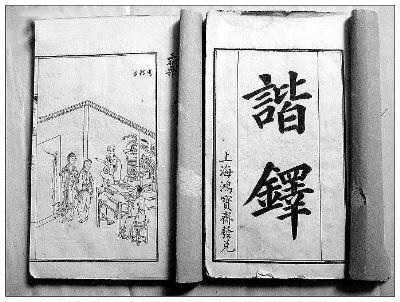 諧鐸
上海鴻寶齋發兌